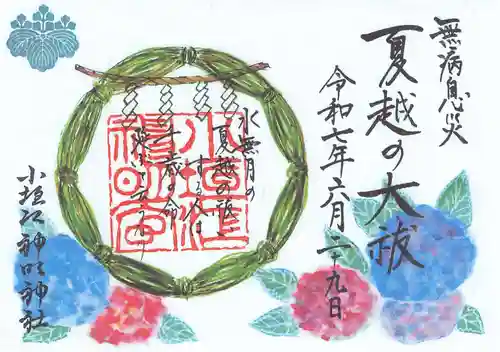 無病息災
夏越の大祓
令和七年六月二十九日
水無月の
夏越の祓
する人は
千歳の命
延ぶというなり
小垣江神明神社